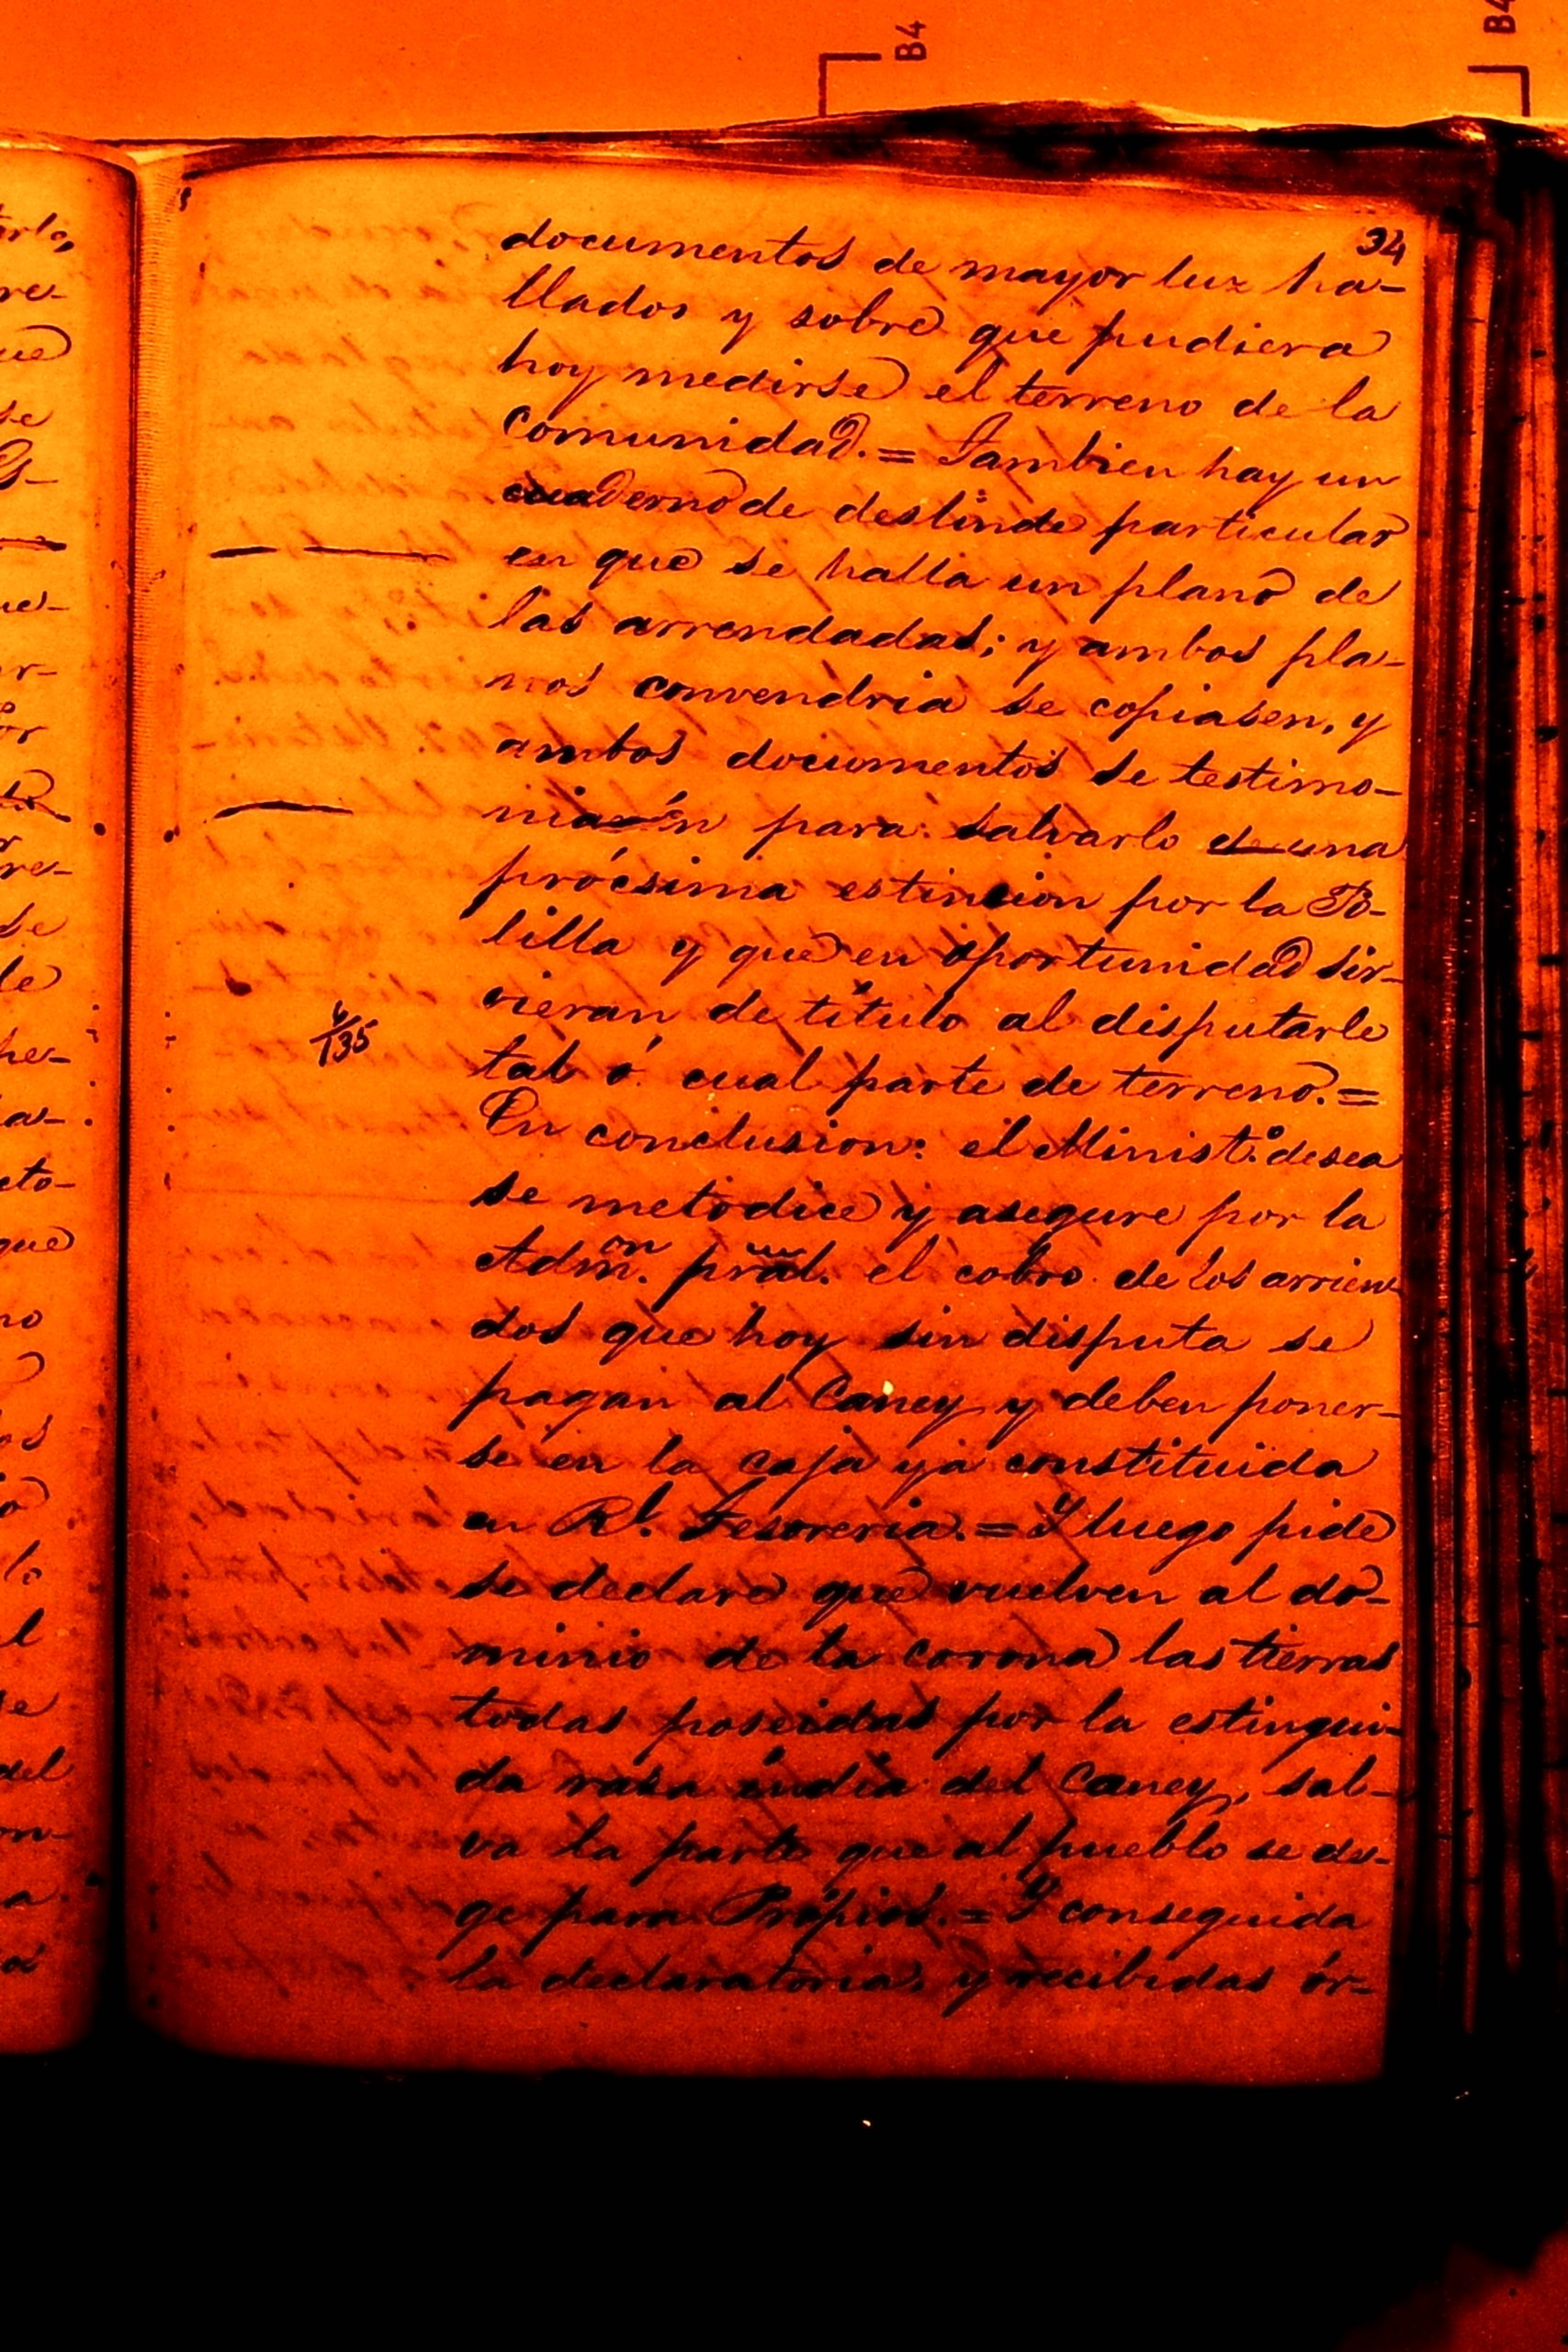 B4
B4
34
documentos de mayor luz ha-
llados y sobre que pudiera
hoy medirse el terreno de la
comunidad.= Tambien hay un
cuaderno de deslinde particular
en que se halla un plano de
las arrendadas; y ambos pla-
nos convendria se copiasen, y
ambos documentos se testimo-
nia n para salvarlo de una
prócsima estincion por la Po-
lilla y que en oportunidad sir-
vieran de título al disputarle
tal ó cual parte de terreno.=
135
En conclusion: el Minist.º desea
se metodice y asegure por la
Adm.on pral. el cobro de los arrien
dos que hoy sin disputa se
pagan al Caney y deben poner-
se en la caja ya constituida
en Rl. Tesoreria.= Y luego pide
se declare que vuelven al do-
minio de la corona las tierras
todas poseidas por la estingui-
da raza india del Caney, sal-
va la parte que al pueblo se de-
ge para Propios.= Y conseguida
la declaratoria, y recibidas ór-